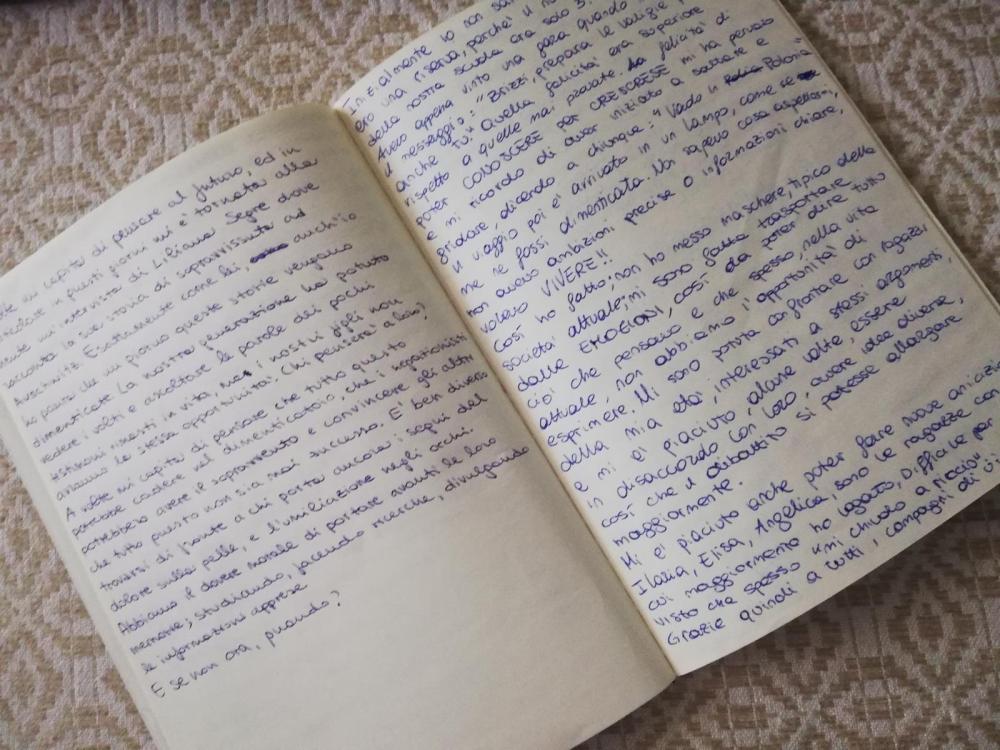 mi capita di pensare al futuro, ed in
in questi giorni mi e' tornata alla
mente un'intervista di Liliana Segre dove
racconta la sua storia di sopravvissuta ad
Auschwitz. Esattamente come lei, anch'io
ho paura che un giorno queste storie vengano
dimenticate. La nostra generazione ha potuto
vedere i volti e ascoltare le parole dei pochi
testimoni rimasti in vita, ma i nostri figli non
avranno la stessa opportunita'. Chi pensera' a loro?
A volte mi capita di pensare che tutto questo
potrebbe cadere nel dimenticatoio, che i negazionisti
potrebbero avere il sopravvento e convincere gli altri
che tutto questo non sia mai successo. E' ben diverso
trovarsi di fronte a chi porta ancora i segni del
dolore sulla pelle, e l'umiliazione negli occhi.
Abbiamo il dovere morale di portare avanti le loro
memorie; studiando, facendo ricerche, divulgando
le informazioni apprese.
E se non ora, quando?
Inizialmente io non
ero una riserva, perche' il
della nostra scuola era solo 3.
Avevo appena vinto una gara quando
il messaggio: "Brizzi, prepara le valigie
anche tu!" Quella felicita' era superiore
rispetto a quelle mai provate. La felicita' di
poter CONOSCERE per CRESCERE mi ha pervaso
e mi ricordo di aver iniziato a saltare e
gridare, dicendo a chiunque: "Vado in Polonia"
Il viaggio poi e' arrivato in un lampo, come se
me ne fossi dimenticata. Non sapevo cosa aspettarmi,
non avevo ambizioni precise o informazioni chiare,
volevo VIVERE!!
Cosi' ho fatto; non ho messo maschere, tipico della
societa' attuale; mi sono fatta trasportare
dalle EMOZIONI, cosi' da poter dire tutto
cio' che pensavo e che spesso, nella vita
attuale, non abbiamo l'opportunita' di
esprimere. Mi sono potuta confrontare con ragazzi
della mia eta', interessati a stessi argomenti,
e mi e' piaciuto, alcune volte, essere
in disaccordo con loro, avere idee diverse,
cosi' che il dibattito si potesse allargare
maggiormente.
Mi e' piaciuto anche poter fare nuove amicizie
Ilaria, Elisa, Angelica, sono le ragazze con
cui maggiormente ho legato. Difficile per
visto che spesso "mi chiudo a riccio".
Grazie quindi a tutti, compagni di